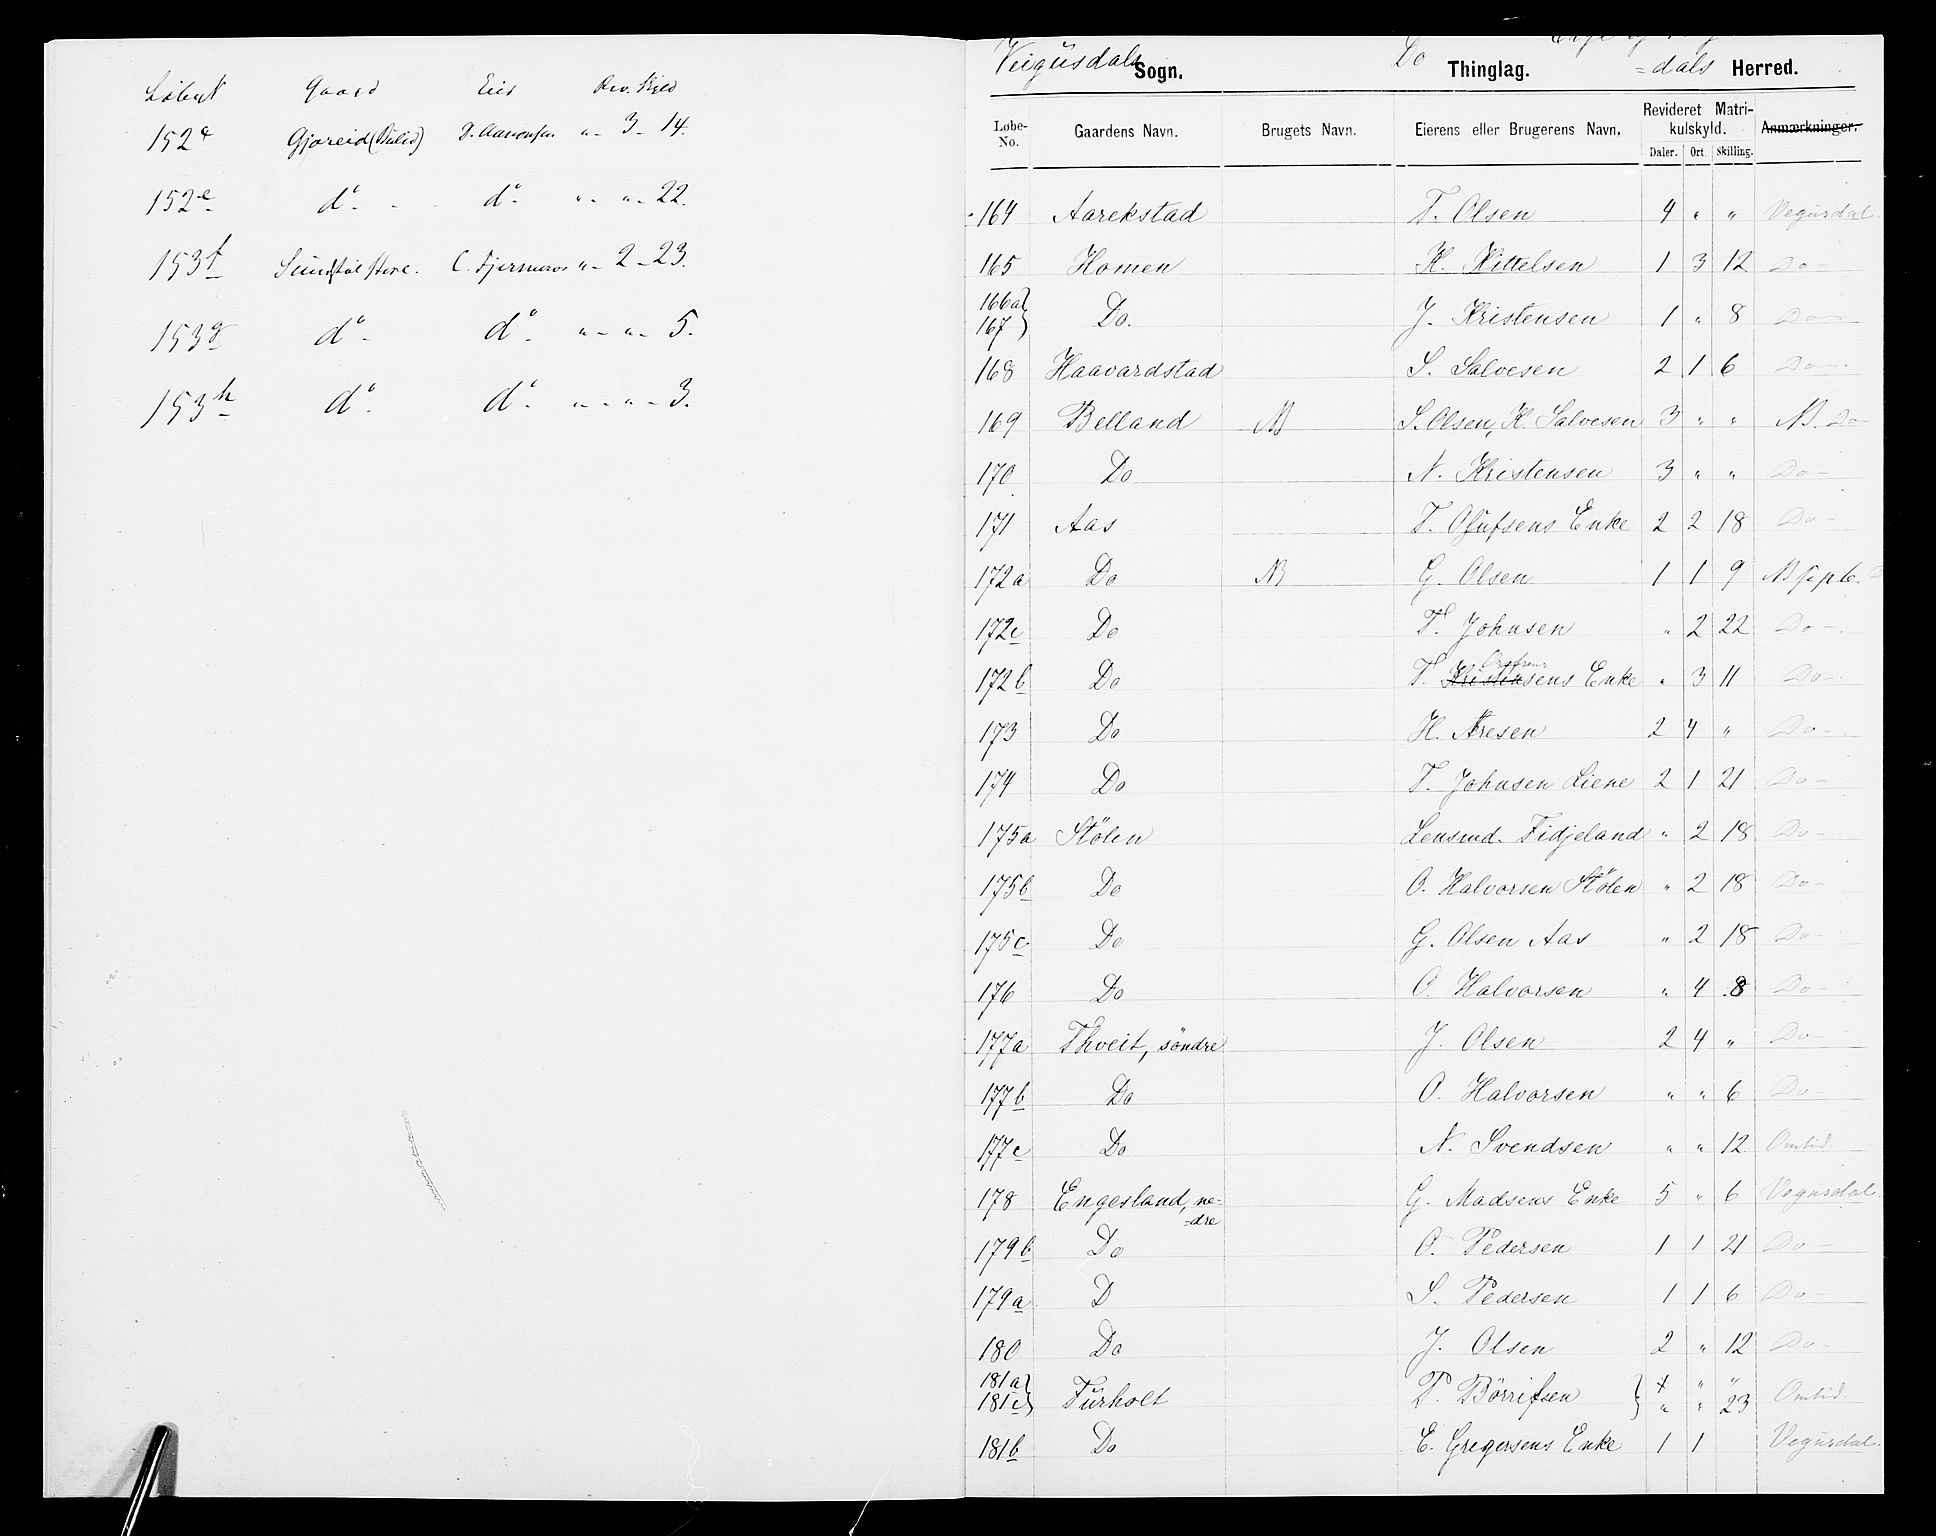 Løbe№ Gaard Eier Rev. Skyld
152d Gjøreid (Dalid) " - 3 - 14.
152e do - do - " - " - 22.
153f C. Fjermeros " - 2 - 23.
153g do - do - " - " - 5.
153h do - do - " - " - 3.
Veigusdals Sogn. Do Thinglag. =dals Herred.
Løbe-No. Gaardens Navn. Brugets Navn. Eierens eller Brugerens Navn. Revideret Matrikulskyld. Daler. Ort. Skilling. Anmærkninger.
164 Aarekstad T. Olsen 4 " " Vegusdal.
165 Homen K. Kittelsen 1 3 12 Do -
166a} 167} Do. J. Kristensen 1 " 8 Do -
168 Haavardstad S. Salvesen 2 1 6 Do -
169 Belland NB S. Olsen, K. Salvesen 3 " " NB. Do
170 Do N. Kristensen 3 " " Do -
171 Aas T. Olufsens Enke 2 2 18 Do -
172a Do NB G. Olsen 1 1 9 NB
172c Do T. Johnsen " 2 22 Do -
172b Do T. Kristensens Enke " 3 11 Do -
173 Do H. Aresen 2 4 " Do -
174 Do T. Johnsen Liene 2 1 21 Do -
175a Stölen Lensmd. Fidjeland " 2 18 Do -
175b Do O. Halvorsen Stölen " 2 18 Do -
175c Do G. Olsen Aas " 2 18 Do -
176 Do O. Halvorsen " 4 8 Do -
177a Thveit, söndre J. Olsen 2 4 " Do -
177b Do O. Halvorsen " " 6 Do -
177c Do N. Svendsen " " 12 Omlid
178 Engesland, ne=
=dre G. Madsens Enke 5 " 6 Vegusdal.
179b Do O. Pedersen 1 1 21 Do -
179a D S. Pedersen 1 1 6 Do -
180 Do J. Olsen 2 " 12 Do -
181a} " "
181c} Furholt P. Börrifsen } " " 23 Omlid.
181b Do E. Gregersens Enke 1 1 Vegusdal.